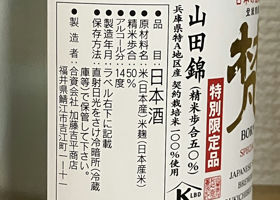 山田錦
(精米歩合五〇%)
兵庫県特A地区産 契約栽培米一〇〇%使用
特別限定品
BORN
SPECIAL
JAPANESE
品目 日本酒
●原材料名:米(日本産)米麹(日本産米)
●精米歩合:50%
●アルコール分:14度
●製造年月:ラベル右下に記載
●保存方法:直射日光をさけ冷暗所(冷蔵
庫等)で保管して下さい。
●製造者:合資会社 加藤吉平商店
福井県鯖江市吉江町一-十一
K
LBD